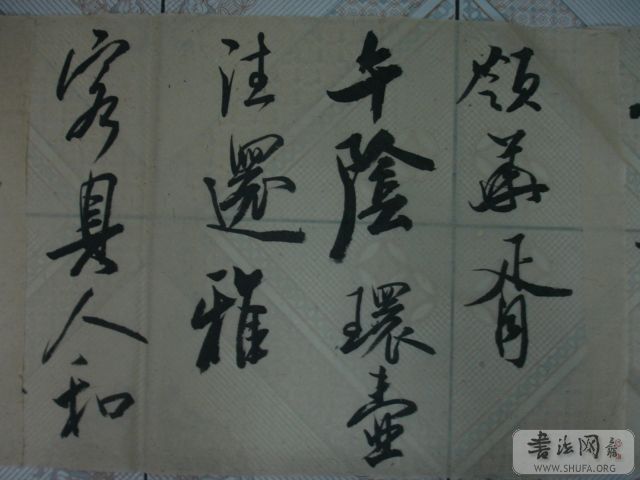 領華胥
午陰環壺
往還雅
客具人和
書法网
WWW.SHUFA.ORG